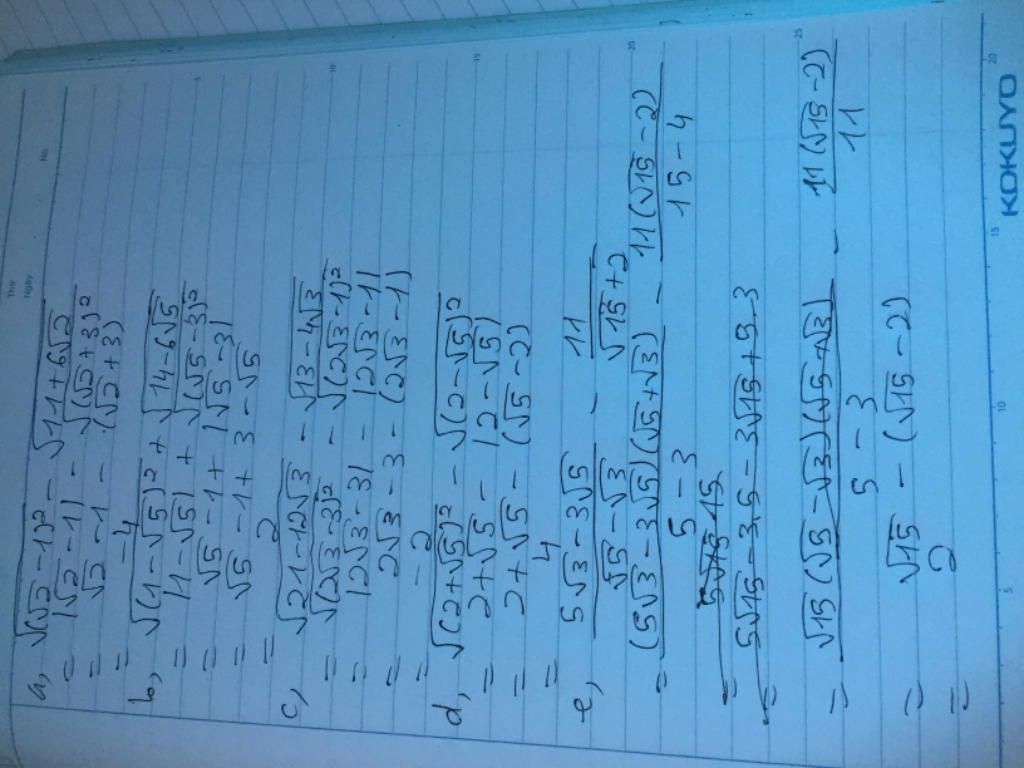 Thứ
Ngày
No.
a, √(√2 - 1)² - √11 + 6√2
= |√2 - 1| - √(√2 + 3)²
= √2 - 1 - (√2 + 3)
= -4
b, √(1 - √5)² + √14 - 6√5
= |1 - √5| + √(√5 - 3)²
= √5 - 1 + |√5 - 3|
= √5 - 1 + 3 - √5
= 2
c, √21 - 12√3 - √13 - 4√3
= √(2√3 - 3)² - √(2√3 - 1)²
= |2√3 - 3| - |2√3 - 1|
= 2√3 - 3 - (2√3 - 1)
= -2
d, √(2 + √5)² - √(2 - √5)²
= 2 + √5 - |2 - √5|
= 2 + √5 - (√5 - 2)
= 4
e, (5√3 - 3√5)/(√5 - √3) - 11/(√15 + 2)
= (5√3 - 3√5)(√5 + √3)/(5 - 3) - 11(√15 - 2)/(15 - 4)
= 5√15 - 3.5 - 3√15 + 5.3
= √15(√5 - √3)(√5 + √3)/(5 - 3) - 11(√15 - 2)/11
= √15 - (√15 - 2)
= 2
5 10 15 20
5 10 15 20 25
KOKUYO